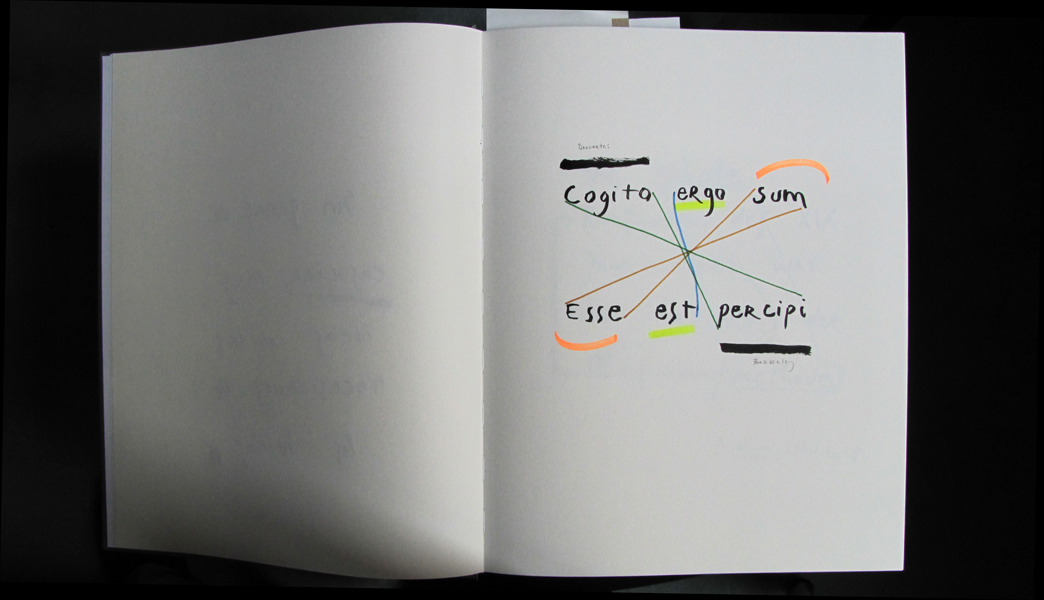 Descartes
Cogito ergo sum
Esse est percipi
Berkeley